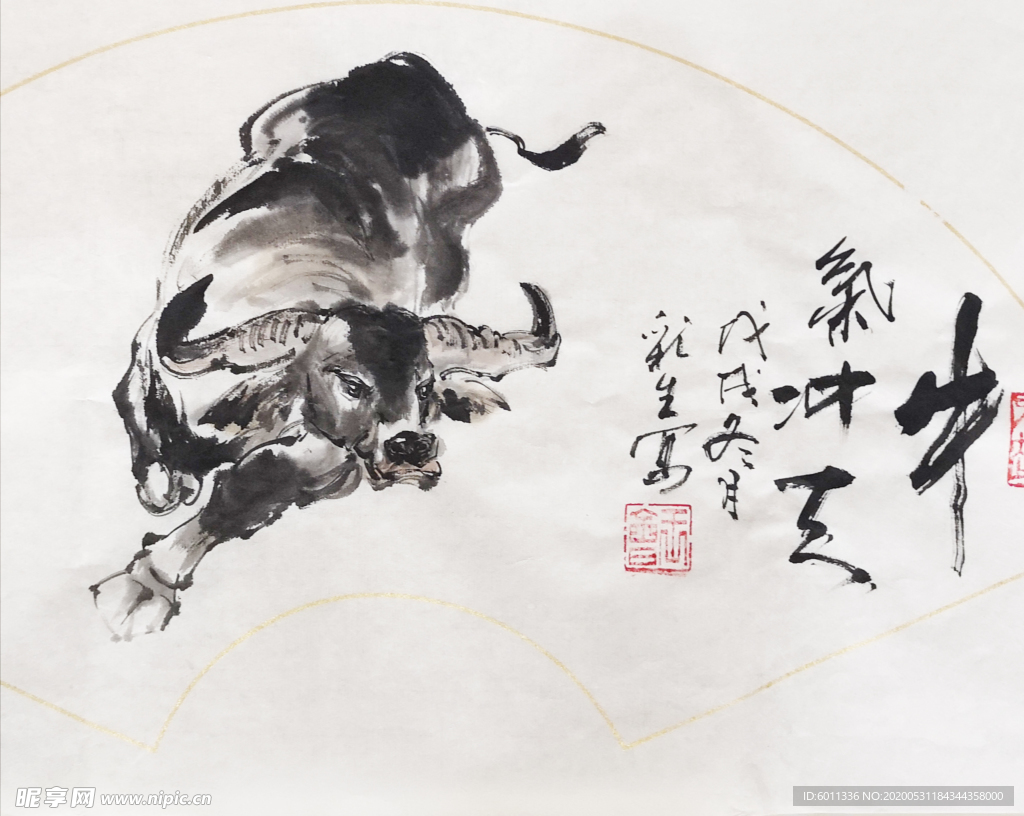 牛
氣冲天
戊戌冬月
彩生寫
昵享网 www.nipic.cn
ID:6011336 NO:20200531184344358000